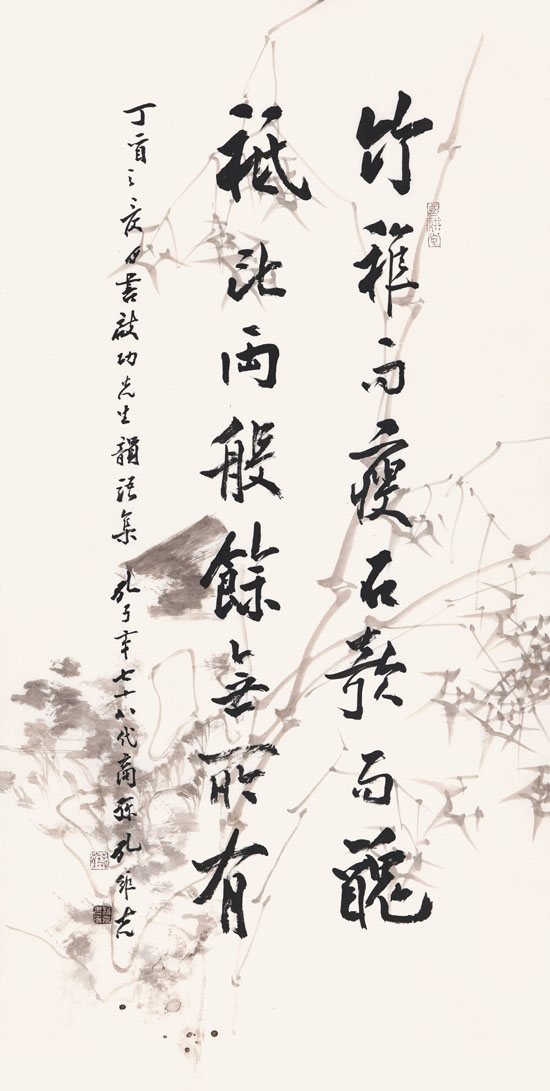 竹稚而瘦石頑而醜
祗此兩般餘無所有
丁酉之夏日書啟功先生韻語集 孔子第七十八代裔孫孔維克